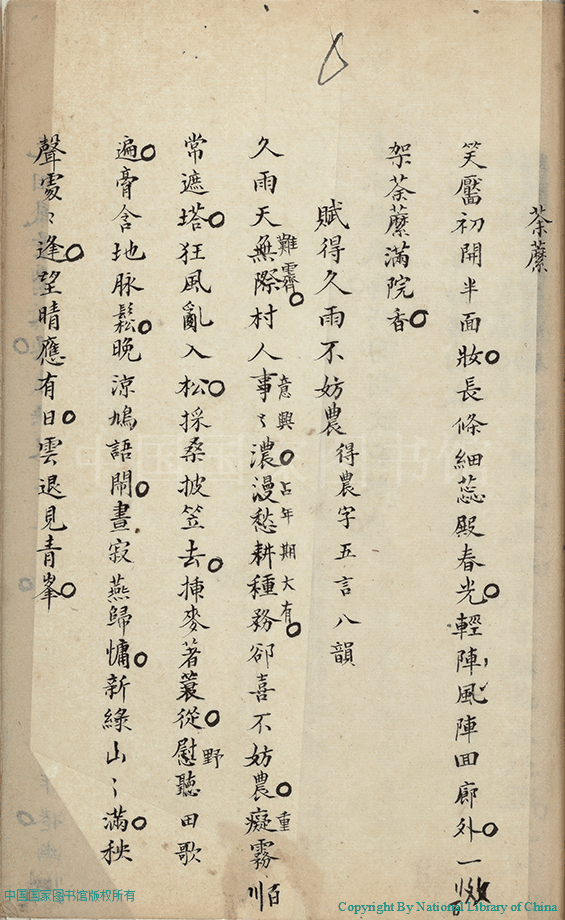 荼蘼
笑靨初開半面妝長條細蕊殿春光輕陣風陣回廊外一
架荼蘼滿院香
賦得久雨不妨農 得農字五言八韻
難霽 意興 占年期大有 重
久雨天無際村人事〻濃漫愁耕種務卻喜不妨農癡霧
野
常遮塔狂風亂入松採桑披笠去揀麥著蓑從慰聽田歌
遍膏含地脉鬆晚涼鳩語鬧晝寂燕歸慵新綠山〻滿秧
聲處〻逢望晴應有日雲退見青峯
中国国家图书馆
中国国家图书馆版权所有
Copyright By National Library of China